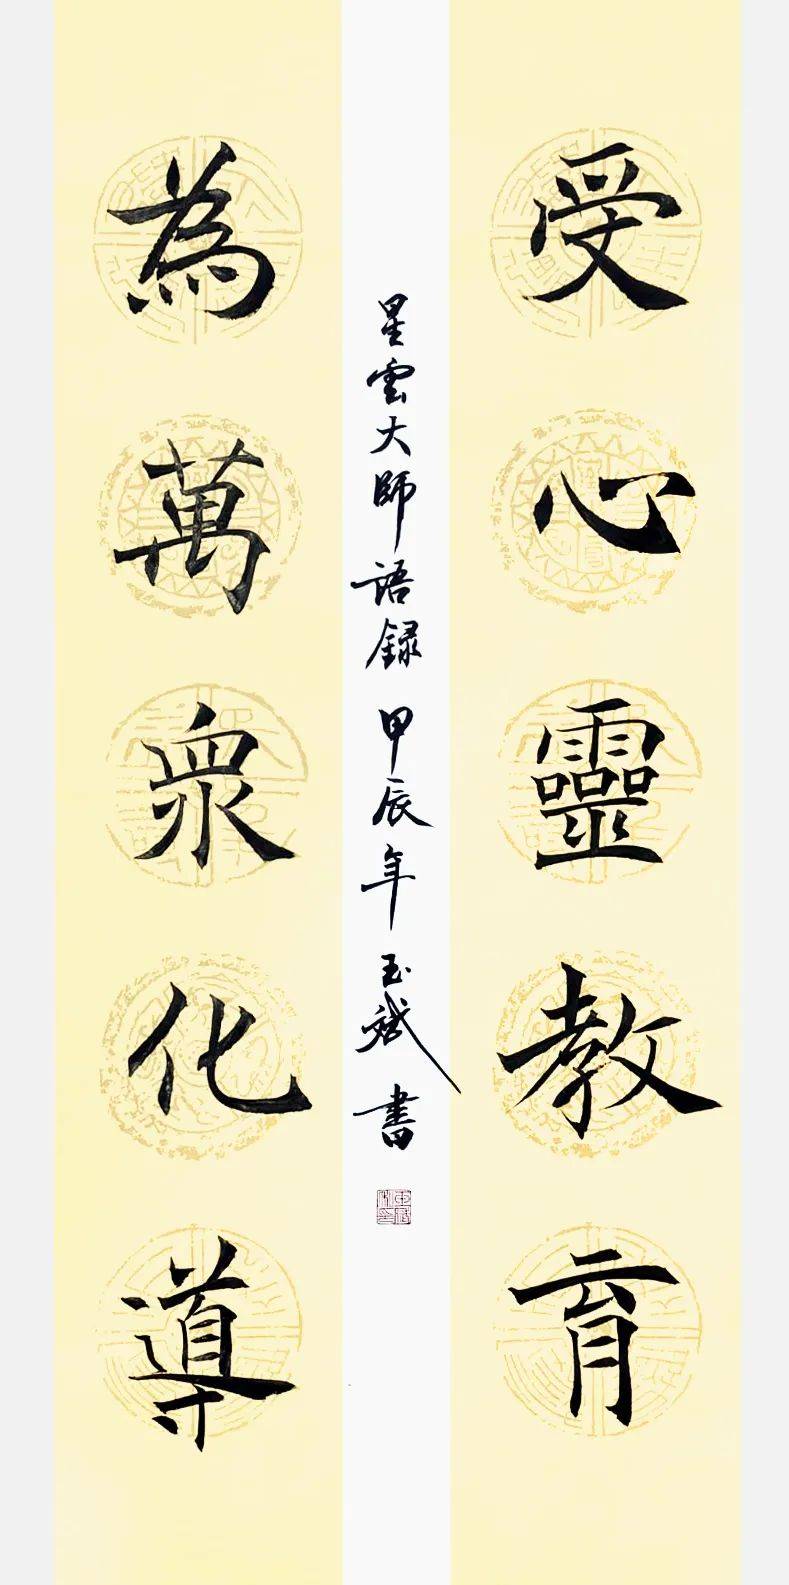 受心靈教育
為萬眾化導
星雲大師語録 甲辰年 玉斌 書